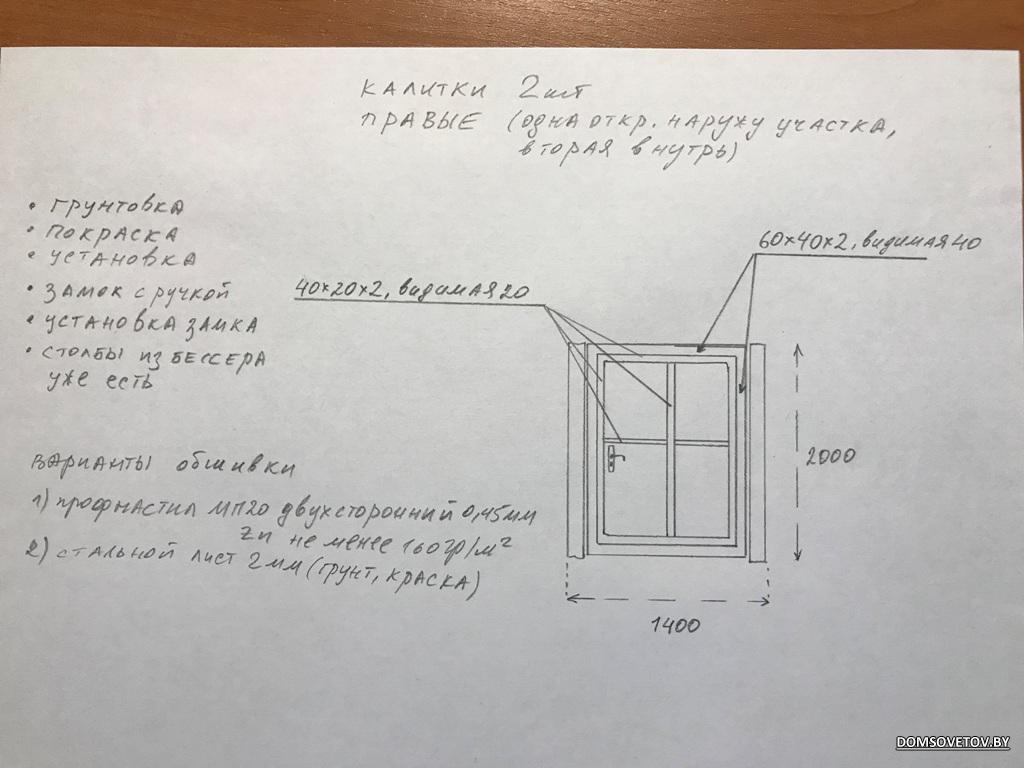 КАЛИТКИ 2 шт
ПРАВЫЕ (одна откр. наружу участка,
вторая внутрь)
• ГРУНТОВКА
• ПОКРАСКА
• УСТАНОВКА
• ЗАМОК с ручкой
• УСТАНОВКА ЗАМКА
• СТОЛБЫ ИЗ БЕССЕРА
уже есть
40×20×2, видимая 20
60×40×2, видимая 40
2000
1400
ВАРИАНТЫ обшивки
1) профнастил МП20 двухсторонний 0,45мм
Zn не менее 160гр/м²
2) стальной лист 2мм (грунт, краска)
DOMSOVETOV.BY